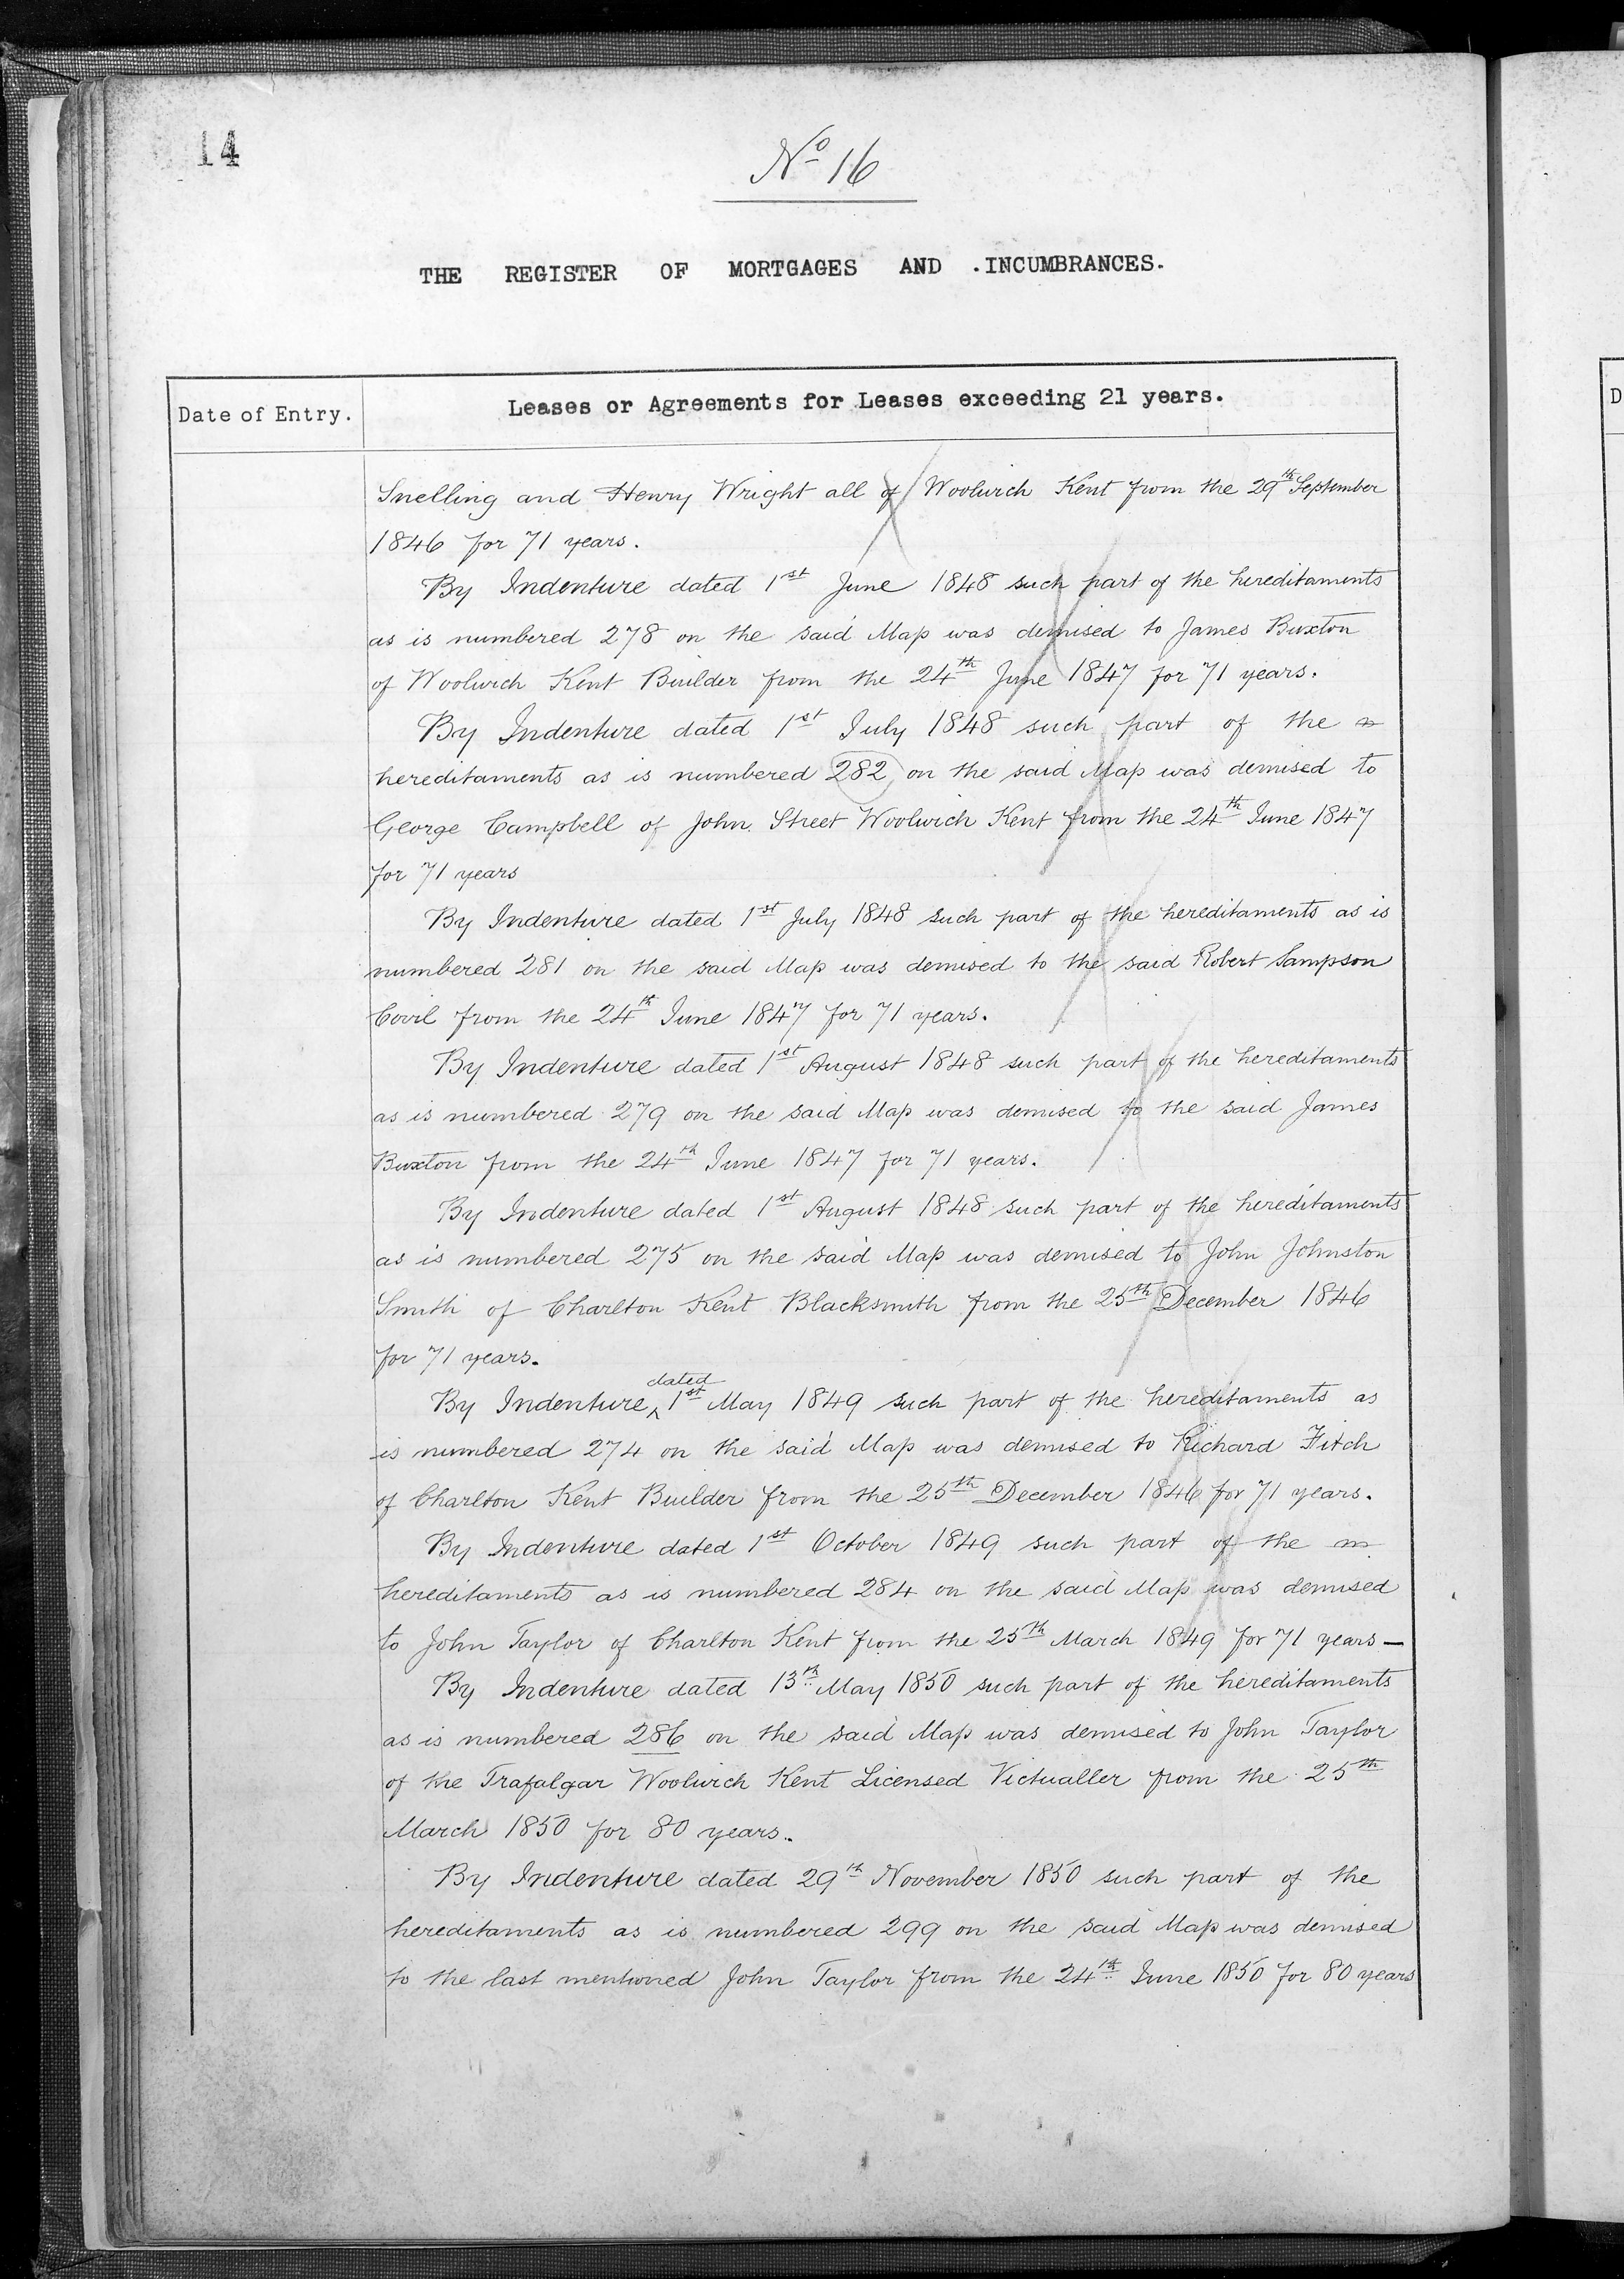 14
No 16
THE REGISTER OF MORTGAGES AND .INCUMBRANCES.
Date of Entry.
Leases or Agreements for Leases exceeding 21 years.
D
Snelling and Henry Wright all of Woolwich Kent from the 29th September
1846 for 71 years.
By Indenture dated 1st June 1848 such part of the hereditaments
as is numbered 278 on the said Map was demised to James Buxton
of Woolwich Kent Builder from the 24th June 1847 for 71 years.
By Indenture dated 1st July 1848 such part of the
hereditaments as is numbered 282 on the said Map was demised to
George Campbell of John Street Woolwich Kent from the 24th June 1847
for 71 years
By Indenture dated 1st July 1848 such part of the hereditaments as is
numbered 281 on the said Map was demised to the said Robert Sampson
Covil from the 24th June 1847 for 71 years.
By Indenture dated 1st August 1848 such part of the hereditaments
as is numbered 279 on the said Map was demised to the said James
Buxton from the 24th June 1847 for 71 years.
By Indenture dated 1st August 1848 such part of the hereditaments
as is numbered 275 on the said Map was demised to John Johnston
Smith of Charlton Kent Blacksmith from the 25th December 1846
for 71 years.
By Indenture dated 1st May 1849 such part of the hereditaments as
is numbered 274 on the said Map was demised to Richard Fitch
of Charlton Kent Builder from the 25th December 1846 for 71 years.
By Indenture dated 1st October 1849 such part of the
hereditaments as is numbered 284 on the said Map was demised
to John Taylor of Charlton Kent from the 25th March 1849 for 71 years —
By Indenture dated 13th May 1850 such part of the hereditaments
as is numbered 286 on the said Map was demised to John Taylor
of the Trafalgar Woolwich Kent Licensed Victualler from the 25th
March 1850 for 80 years.
By Indenture dated 29th November 1850 such part of the
hereditaments as is numbered 299 on the said Map was demised
to the last mentioned John Taylor from the 24th June 1850 for 80 years